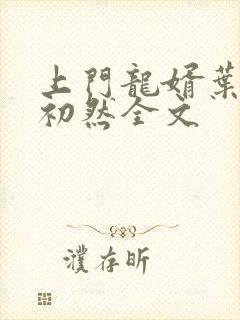 上門龍婿葉
初然全文
濮存昕